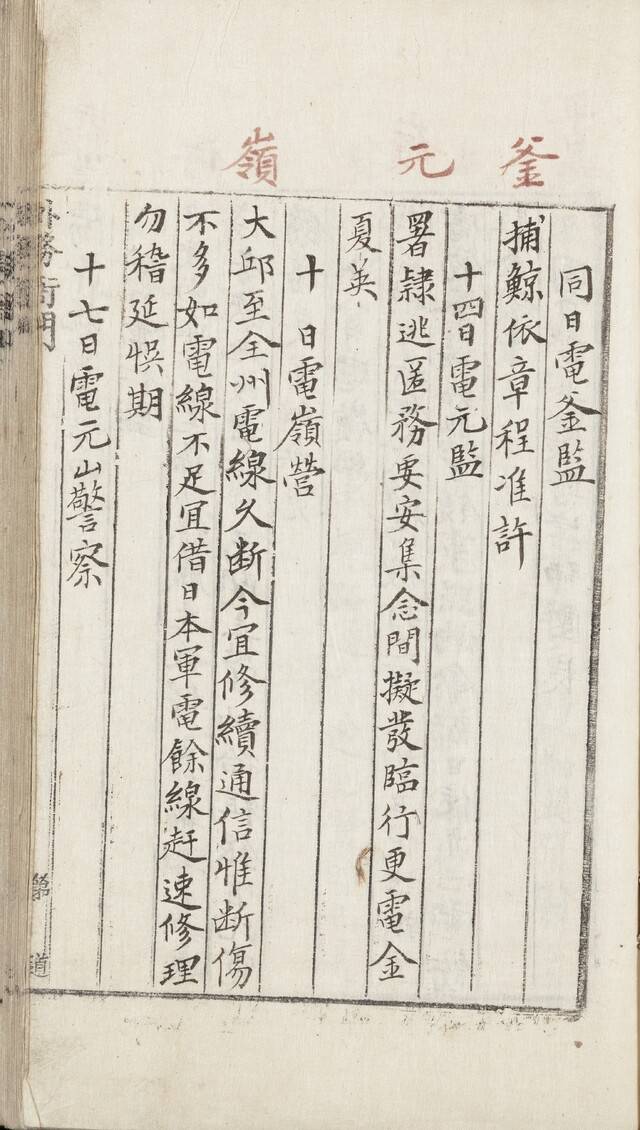 釜
元
嶺
同日電釜監
捕鯨依章程准許
十四日電元監
署隷逃匿務要安集念間擬發臨行更電金
夏英
十 日電嶺營
大邱至全州電線久断今宜修續通信惟断傷
不多如電線不足宜借日本軍電餘線赶速修理
勿稽延悞期
十七日電元山警察
外務衙門
第 道